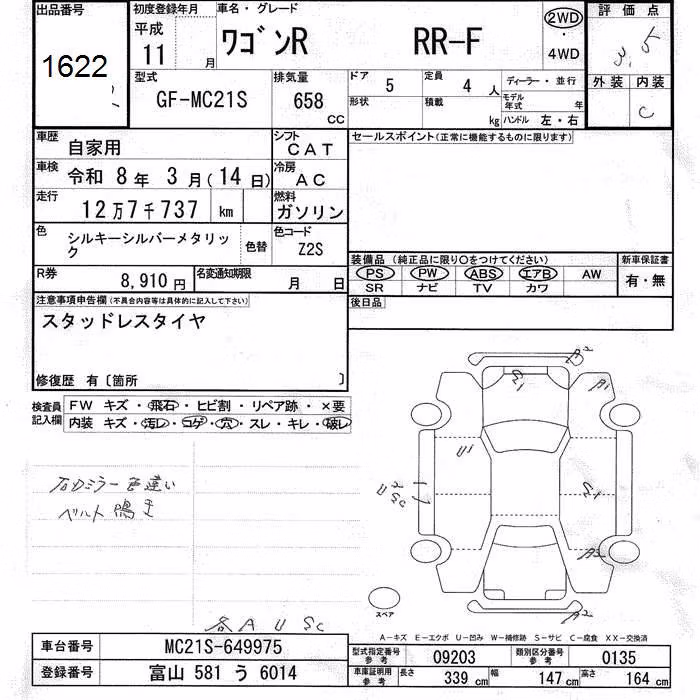 出品番号
1622
初度登録年月
平成
11 月
車名・グレード
ワゴンR RR-F
2WD
・
4WD
評価点
3.5
外装 内装
C
型式
GF-MC21S
排気量
658 CC
ドア 5
定員 4 人
ディーラー・並行
形状
積載 kg
モデル年式 年
ハンドル 左・右
車歴 自家用
シフト CAT
車検 令和 8年 3月(14日)
冷房 AC
走行 12万7千737 km
燃料 ガソリン
色 シルキーシルバーメタリック
色替
色コード Z2S
R券 8,910円
名変通知期限 月 日
セールスポイント(正常に機能するものに限ります)
装備品(純正品に限り○をつけてください)
PS PW ABS エアB AW
SR ナビ TV カワ
新車保証書
有・無
後日品
注意事項申告欄(不具合内容等は具体的に記入して下さい)
スタッドレスタイヤ
修復歴 有〔箇所 〕
検査員記入欄
FW キズ・飛石・ヒビ割・リペア跡・×要
内装 キズ・汚レ・コゲ・穴・スレ・キレ・破レ
右ドミラー色違い
ベルト鳴き
各 A U Sc
A2
S1
A1
U1
U Sc
S1
A3
A2
スペア
A-キズ E-エクボ U-凹み W-補修跡 S-サビ C-腐食 XX-交換済
車台番号 MC21S-649975
登録番号 富山 581 う 6014
型式指定番号 参考 09203
類別区分番号 参考 0135
車庫証明用 参考 長さ 339 cm 幅 147 cm 高さ 164 cm